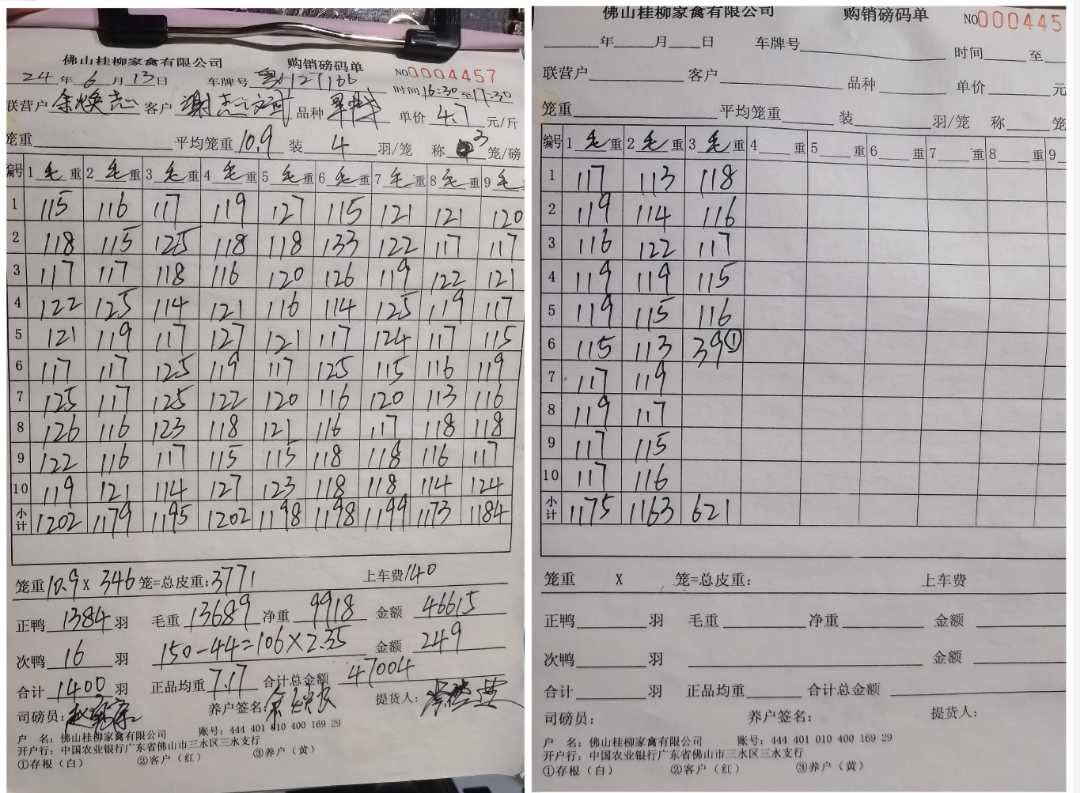 佛山桂柳家禽有限公司 购销磅码单
NO0004457
24年6月13日 车牌号
时间16:30至17:30
联营户余焕志 客户 品种 单价4.7元/斤
笼重 平均笼重10.9 装4羽/笼 称3笼/磅
编号 1毛重 2毛重 3毛重 4毛重 5毛重 6毛重 7毛重 8毛重 9毛
1 115 116 117 119 127 115 121 121 120
2 118 115 125 118 118 133 122 117 117
3 117 117 118 116 120 126 119 122 121
4 122 125 114 121 116 114 125 119 117
5 121 119 117 127 121 117 124 117 115
6 117 117 125 119 117 125 115 116 119
7 125 117 125 122 120 116 120 113 116
8 126 116 123 118 121 116 117 118 118
9 122 116 117 115 115 118 118 116 117
10 119 121 114 127 123 118 118 114 124
小计 1202 1179 1195 1202 1198 1198 1199 1173 1184
笼重10.9x346笼=总皮重:3771 上车费140
正鸭1384羽 毛重13689 净重9918 金额46615
次鸭16羽 150-44=106×2.35 金额249
合计1400羽 正品均重7.17 合计总金额47004
司磅员: 养户签名: 提货人:
户 名:佛山桂柳家禽有限公司 账号:444 401 010 400 169 29
开户行:中国农业银行广东省佛山市三水区三水支行
①存根(白) ②客户(红) ③养户(黄)
佛山桂柳家禽有限公司 购销磅码单 NO000445
年 月 日 车牌号 时间 至
联营户 客户 品种 单价 元
笼重 平均笼重 装 羽/笼 称 笼
编号 1毛重 2毛重 3毛重 4 重 5 重 6 重 7 重 8 重 9
1 117 113 118
2 119 114 116
3 116 122 117
4 119 119 115
5 119 115 116
6 115 113 39①
7 117 119
8 119 117
9 117 115
10 117 116
小计 1175 1163 621
笼重 X 笼=总皮重: 上车费
正鸭 羽 毛重 净重 金额
次鸭 羽 金额
合计 羽 正品均重 合计总金额
司磅员: 养户签名: 提货人:
户 名:佛山桂柳家禽有限公司 账号:444 401 010 400 169 29
开户行:中国农业银行广东省佛山市三水区三水支行
①存根(白) ②客户(红) ③养户(黄)